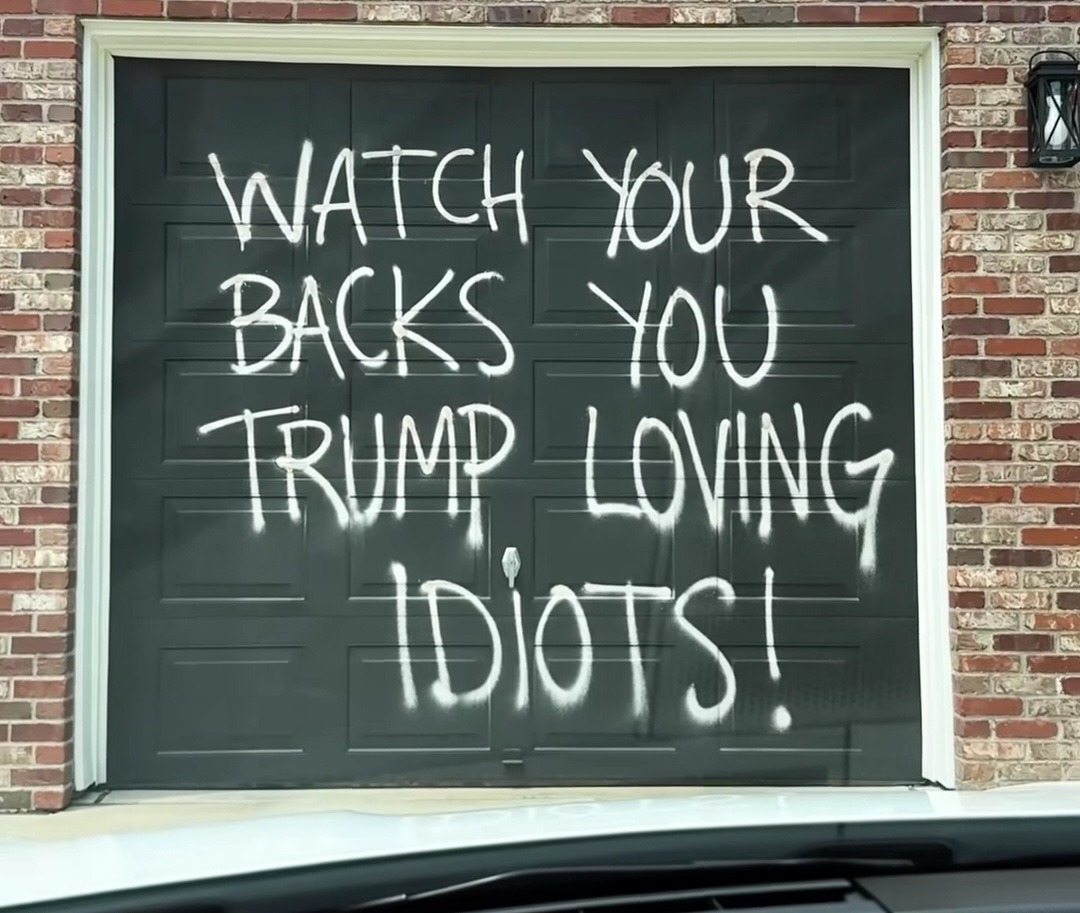 WATCH YOUR
BACKS YOU
TRUMP LOVING
IDIOTS!